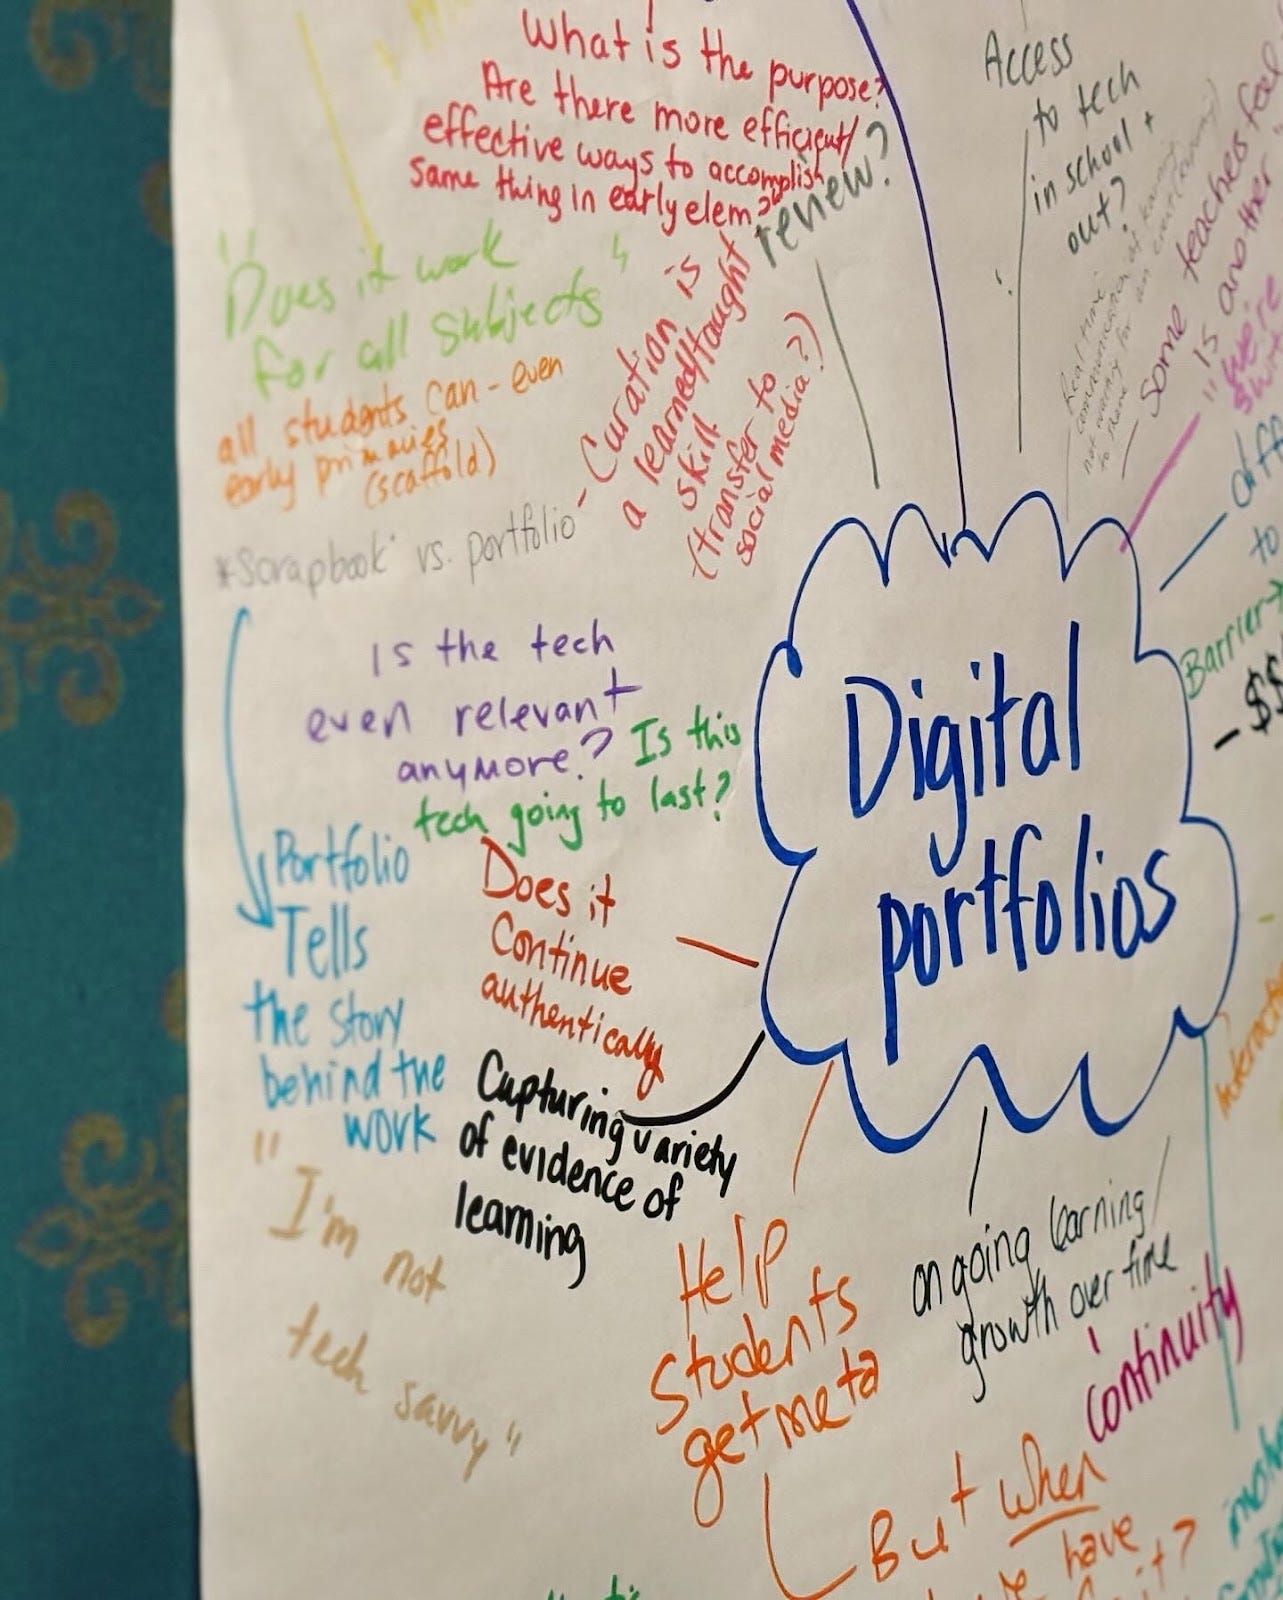 What is the purpose?
Are there more efficient/
effective ways to accomplish
same thing in early elem?
review?
Access
to tech
in school +
out?
"Does it work
for all subjects"
all students can - even
early primaries
(scaffold)
- Curation is
a learned/taught
skill
(transfer to
social media?)
*Scrapbook vs. portfolio
Real time
communication of learning
to share
Some teachers feel
is another
"We're
diff
to
Barrier→
- $$
Is the tech
even relevant
anymore?
Is this
tech going to last?
Digital
portfolios
Portfolio
Tells
the story
behind the
work
Does it
Continue
authentically
Capturing variety
of evidence of
learning
"I'm not
tech savvy"
Help
students
get meta
ongoing learning/
growth over time
continuity
But when
have
it?